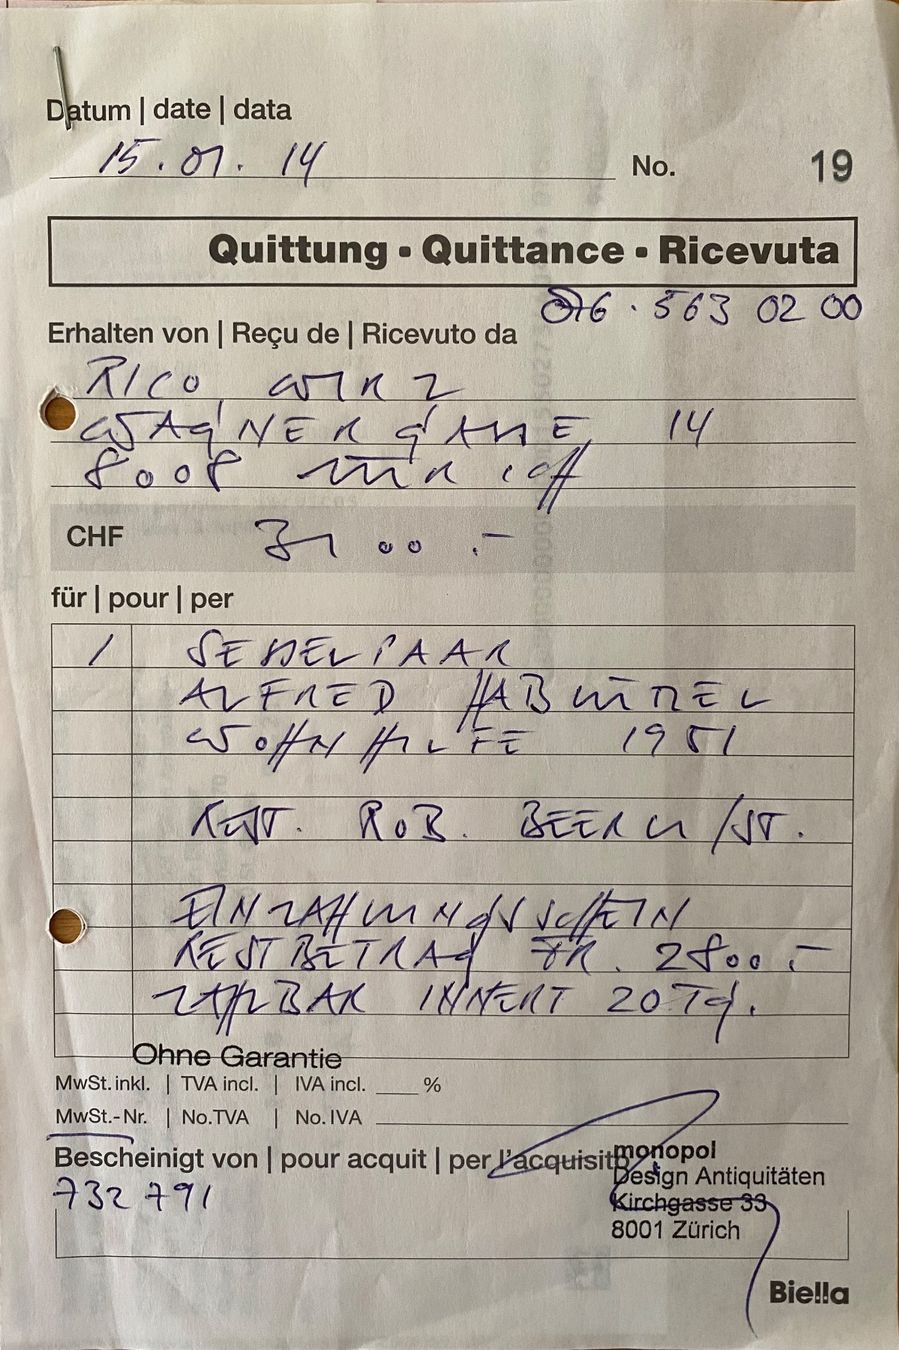 Datum | date | data
15.01.14
No. 19
Quittung ▪ Quittance ▪ Ricevuta
076 · 563 02 00
Erhalten von | Reçu de | Ricevuto da
RICO WIRZ
WAGNERGASSE 14
8008 ZÜRICH
CHF 3100.-
für | pour | per
1 SESSELPAAR
ALFRED ALTHERR
WOHNHILFE 1951
REST. ROB. BEER
EINZAHLUNGSSCHEIN
RESTBETRAG FR. 2800.-
ZAHLBAR INNERT 20 Tg.
Ohne Garantie
MwSt. inkl. | TVA incl. | IVA incl. ____ %
MwSt.-Nr. | No. TVA | No. IVA
Bescheinigt von | pour acquit | per l'acquisito
monopol
Design Antiquitäten
732 791
Kirchgasse 33
8001 Zürich
Biella